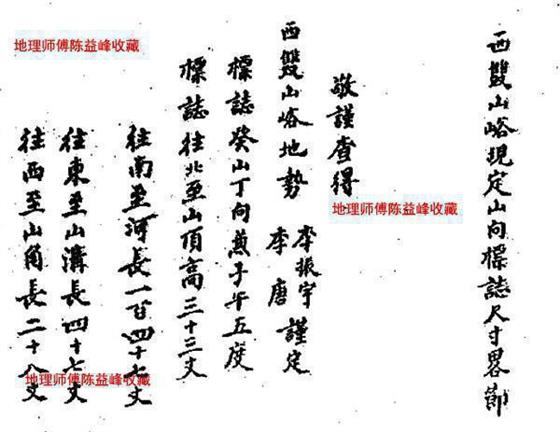 西雙山峪現定山向標誌尺寸畧節
敬謹查得
西雙山峪地勢
李振宇
李唐
謹定
標誌癸山丁向兼子午五度
標誌往北至山頂高三十三丈
往南至河長一百四十七丈
往東至山溝長四十七丈
往西至山角長二十八丈
地理师傅陈益峰收藏
地理师傅陈益峰收藏
地理师傅陈益峰收藏